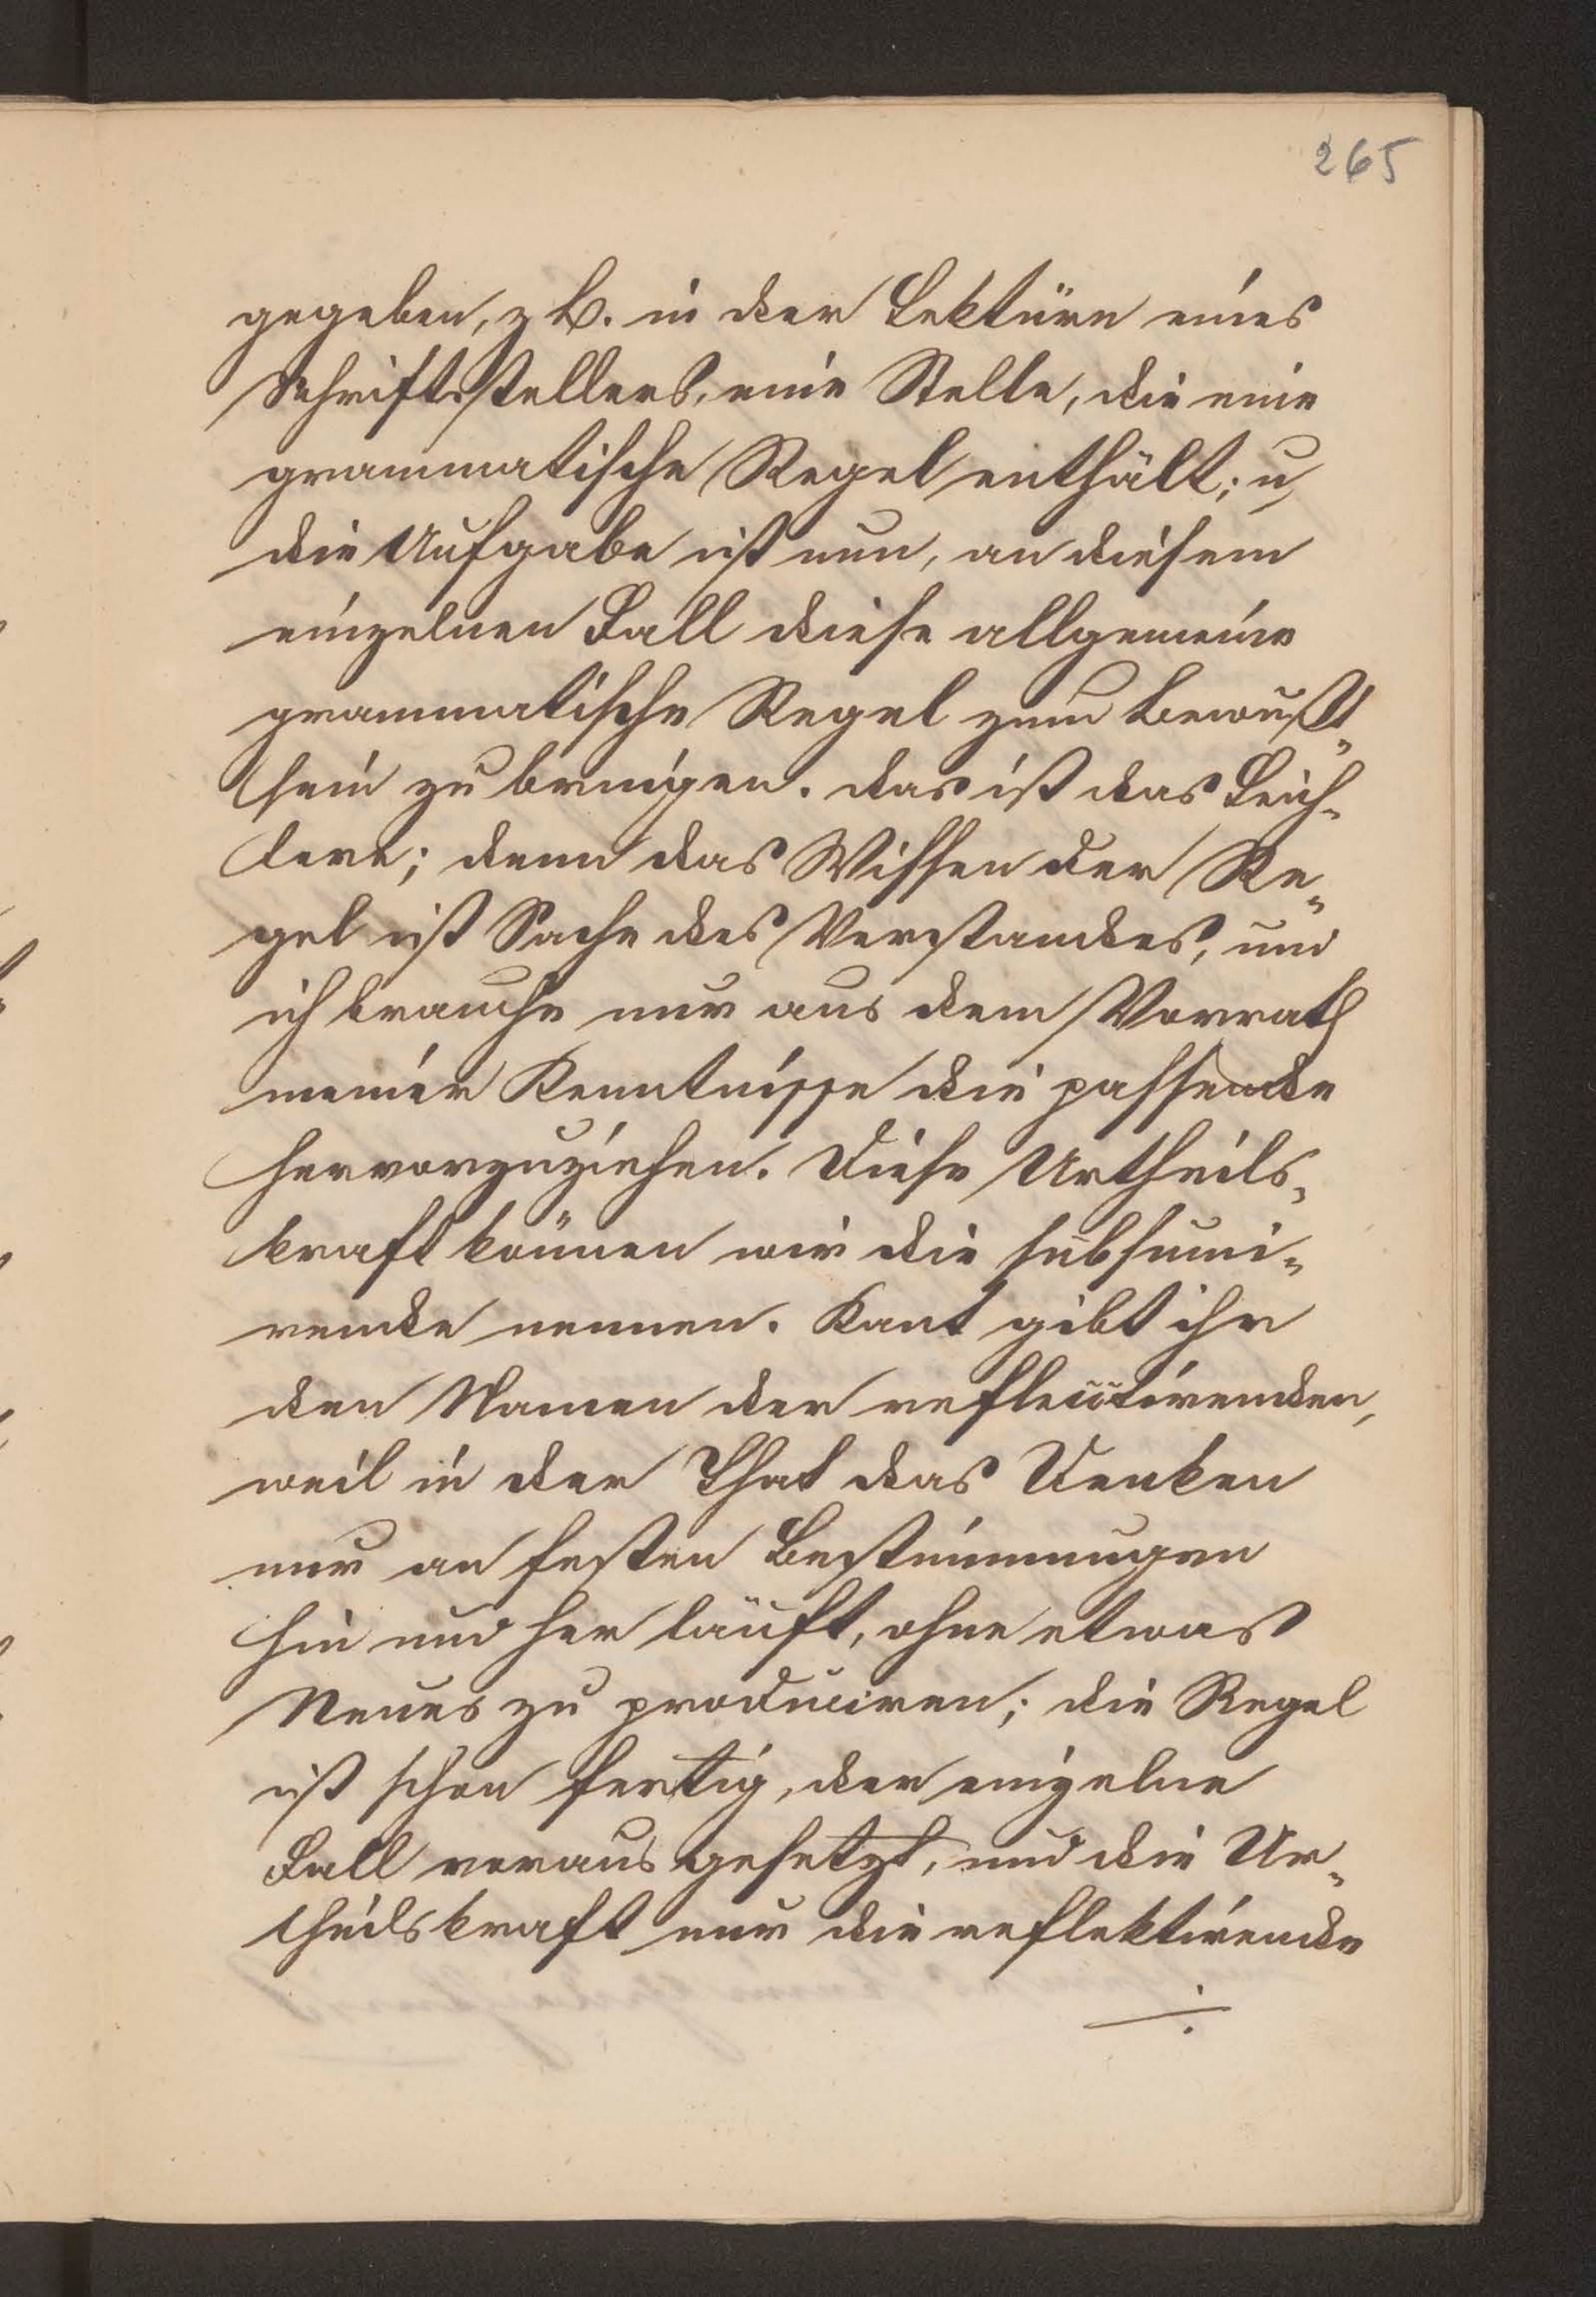 265
gegeben, z. B. in der Lektüre eines
Schriftstellers, eine Stelle, die eine
grammatische Regel enthält; u
die Aufgabe ist nun, an diesem
einzelnen Fall diese allgemeine
grammatische Regel zum Bewußt„
sein zu bringen. das ist das Leich„
tere; denn das Wissen der Re„
gel ist Sache des Verstandes, und
ich brauche nur aus dem Vorrath
meiner Kenntnisse die passende
hervorzuziehen. Diese Urtheils„
kraft können wir die subsumi„
rende nennen. Kant gibt ihr
den Namen der reflectirenden,
weil in der That das Denken
nur an festen Bestimmungen
hin und her läuft, ohne etwas
Neues zu produciren; die Regel
ist schon fertig, der einzelne
Fall vorausgesetzt, und die Ur„
theilskraft nur die reflektirende